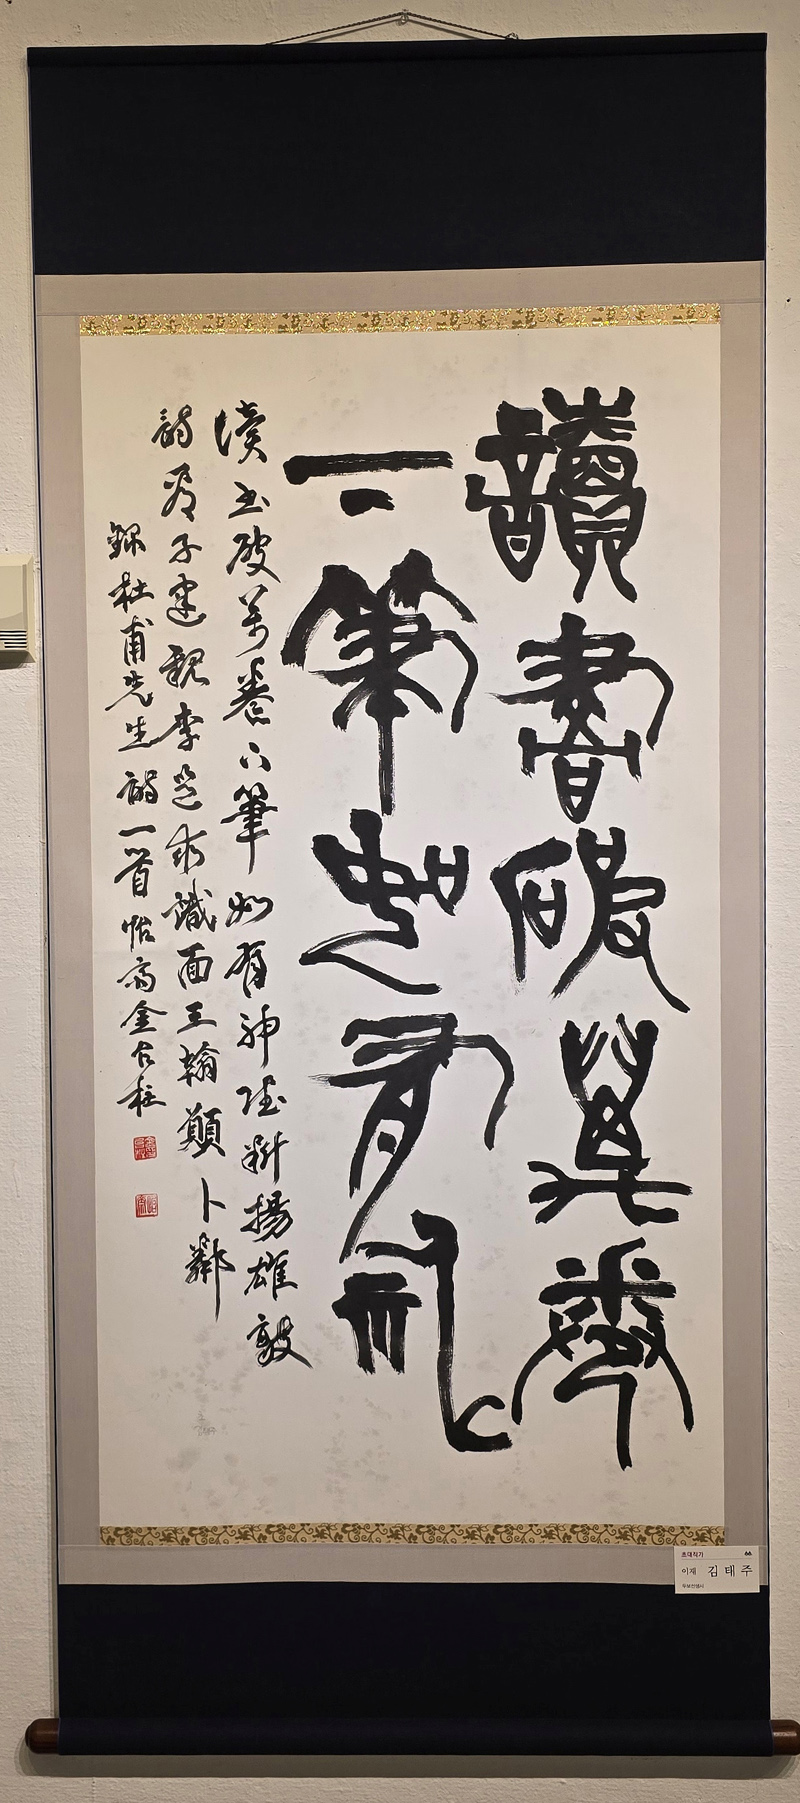 讀書破萬卷
下筆如有神
讀書破萬卷下筆如有神賦料揚雄敵
詩看子建親李邕求識面王翰願卜鄰
錄杜甫先生詩一首怡齋金台柱
초대작가
이재 김태주
두보선생시